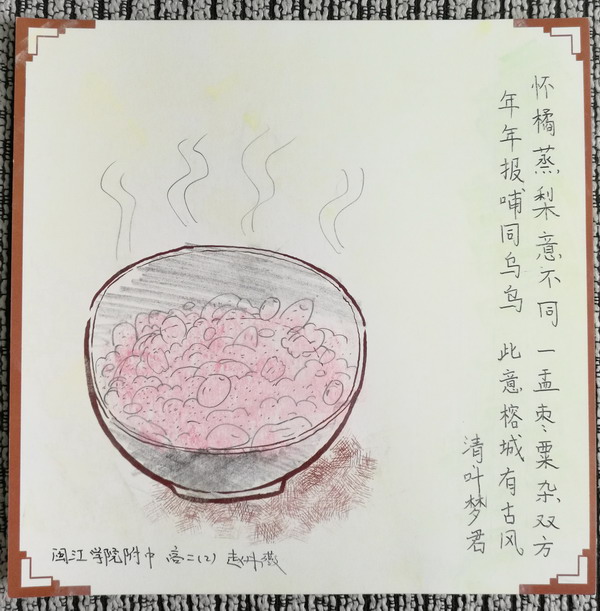 怀橘蒸梨意不同 一盂枣粟杂双方
年年报哺同乌鸟 此意榕城有古风
清叶梦君
闽江学院附中 高二(2)